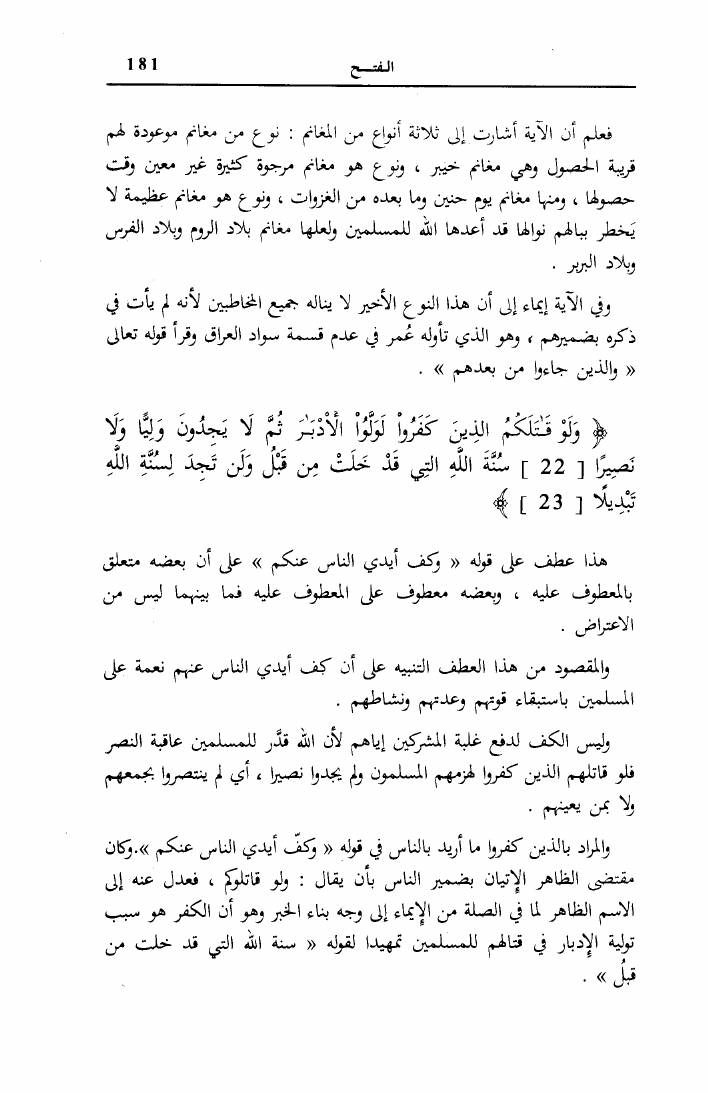 181
الفتـــح
فعلم أن الآية أشارت إلى ثلاثة أنواع من المغانم : نوع من مغانم موعودة لهم
قريبة الحصول وهي مغانم خيبر ، ونوع هو مغانم مرجوة كثيرة غير معين وقت
حصولها ، ومنها مغانم يوم حنين وما بعده من الغزوات ، ونوع هو مغانم عظيمة لا
يَخطر ببالهم نوالها قد أعدها الله للمسلمين ولعلها مغانم بلاد الروم وبلاد الفرس
وبلاد البربر .
وفي الآية إيماء إلى أن هذا النوع الأخير لا يناله جميع المخاطبين لأنه لم يأت في
ذكره بضميرهم ، وهو الذي تأوله عُمر في عدم قسمة سواد العراق وقرأ قوله تعالى
« والذين جاءوا من بعدهم » .
﴿ وَلَوْ قَـٰتَلَكُمُ الذِينَ كَفَرُواْ لَوَلَّوُاْ الْأَدْبَـٰرَ ثُمَّ لَا يَجِدُونَ وَلِيًّا وَلَا
نَصِيرًا [ 22 ] سُنَّةَ اللَّهِ التِي قَدْ خَلَتْ مِن قَبْلُ وَلَن تَجِدَ لِسُنَّةِ اللَّهِ
تَبْدِيلًا [ 23 ] ﴾
هذا عطف على قوله « وكف أيدي الناس عنكم » على أن بعضه متعلق
بالمعطوف عليه ، وبعضه معطوف على المعطوف عليه فما بينهما ليس من
الاعتراض .
والمقصود من هذا العطف التنبيه على أن كف أيدي الناس عنهم نعمة على
المسلمين باستبقاء قوتهم وعدتهم ونشاطهم .
وليس الكف لدفع غلبة المشركين إياهم لأن الله قدَّر للمسلمين عاقبة النصر
فلو قاتلهم الذين كفروا لهزمهم المسلمون ولم يجدوا نصيرا ، أي لم ينتصروا بجمعهم
ولا بمن يعينهم .
والمراد بالذين كفروا ما أريد بالناس في قوله « وكفّ أيدي الناس عنكم ».وكان
مقتضى الظاهر الإتيان بضمير الناس بأن يقال : ولو قاتلوكم ، فعدل عنه إلى
الاسم الظاهر لما في الصلة من الإيماء إلى وجه بناء الخبر وهو أن الكفر هو سبب
تولية الإدبار في قتالهم للمسلمين تمهيدا لقوله « سنة الله التي قد خلت من
قبلُ » .